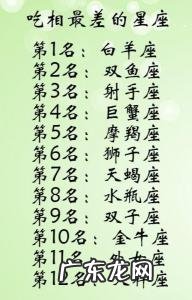 吃相最差的星座
第1名：白羊座
第2名：双鱼座
第3名：射手座
第4名：巨蟹座
第5名：摩羯座
第6名：狮子座
第7名：天蝎座
第8名：水瓶座
第9名：双子座
第10名：金牛座